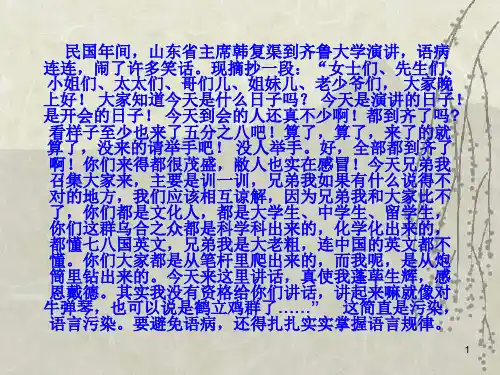 民国年间，山东省主席韩复渠到齐鲁大学演讲，语病
连连，闹了许多笑话。现摘抄一段：“女士们、先生们、
小姐们、太太们、哥们儿、姐妹儿、老少爷们， 大家晚
上好！ 大家知道今天是什么日子吗？ 今天是演讲的日子！
是开会的日子！ 今天到会的人还真不少啊！都到齐了吗？
看样子至少也来了五分之八吧！算了，算了，来了的就
算了，没来的请举手吧！ 没人举手。好，全部都到齐了
啊！你们来得都很茂盛，敝人也实在感冒！今天兄弟我
召集大家来，主要是训一训，兄弟我如果有什么说得不
对的地方，我们应该相互谅解，因为兄弟我和大家比不
了，你们都是文化人，都是大学生、中学生、留学生，
你们这群乌合之众都是科学科出来的，化学化出来的，
都懂七八国英文，兄弟我是大老粗，连中国的英文都不
懂。你们大家都是从笔杆里爬出来的，而我呢，是从炮
筒里钻出来的。今天来这里讲话，真使我蓬荜生辉，感
恩戴德。其实我没有资格给你们讲话，讲起来嘛就像对
牛弹琴，也可以说是鹤立鸡群了……” 这简直是污染，
语言污染。要避免语病，还得扎扎实实掌握语言规律。
1